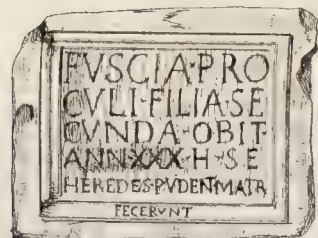 FVSCIA·PRO
CVLI·FILIA·SE
CVNDA·OBIT·
ANN·XXX·H·S·E
HEREDES·PVDENT·MATR
FECERVNT